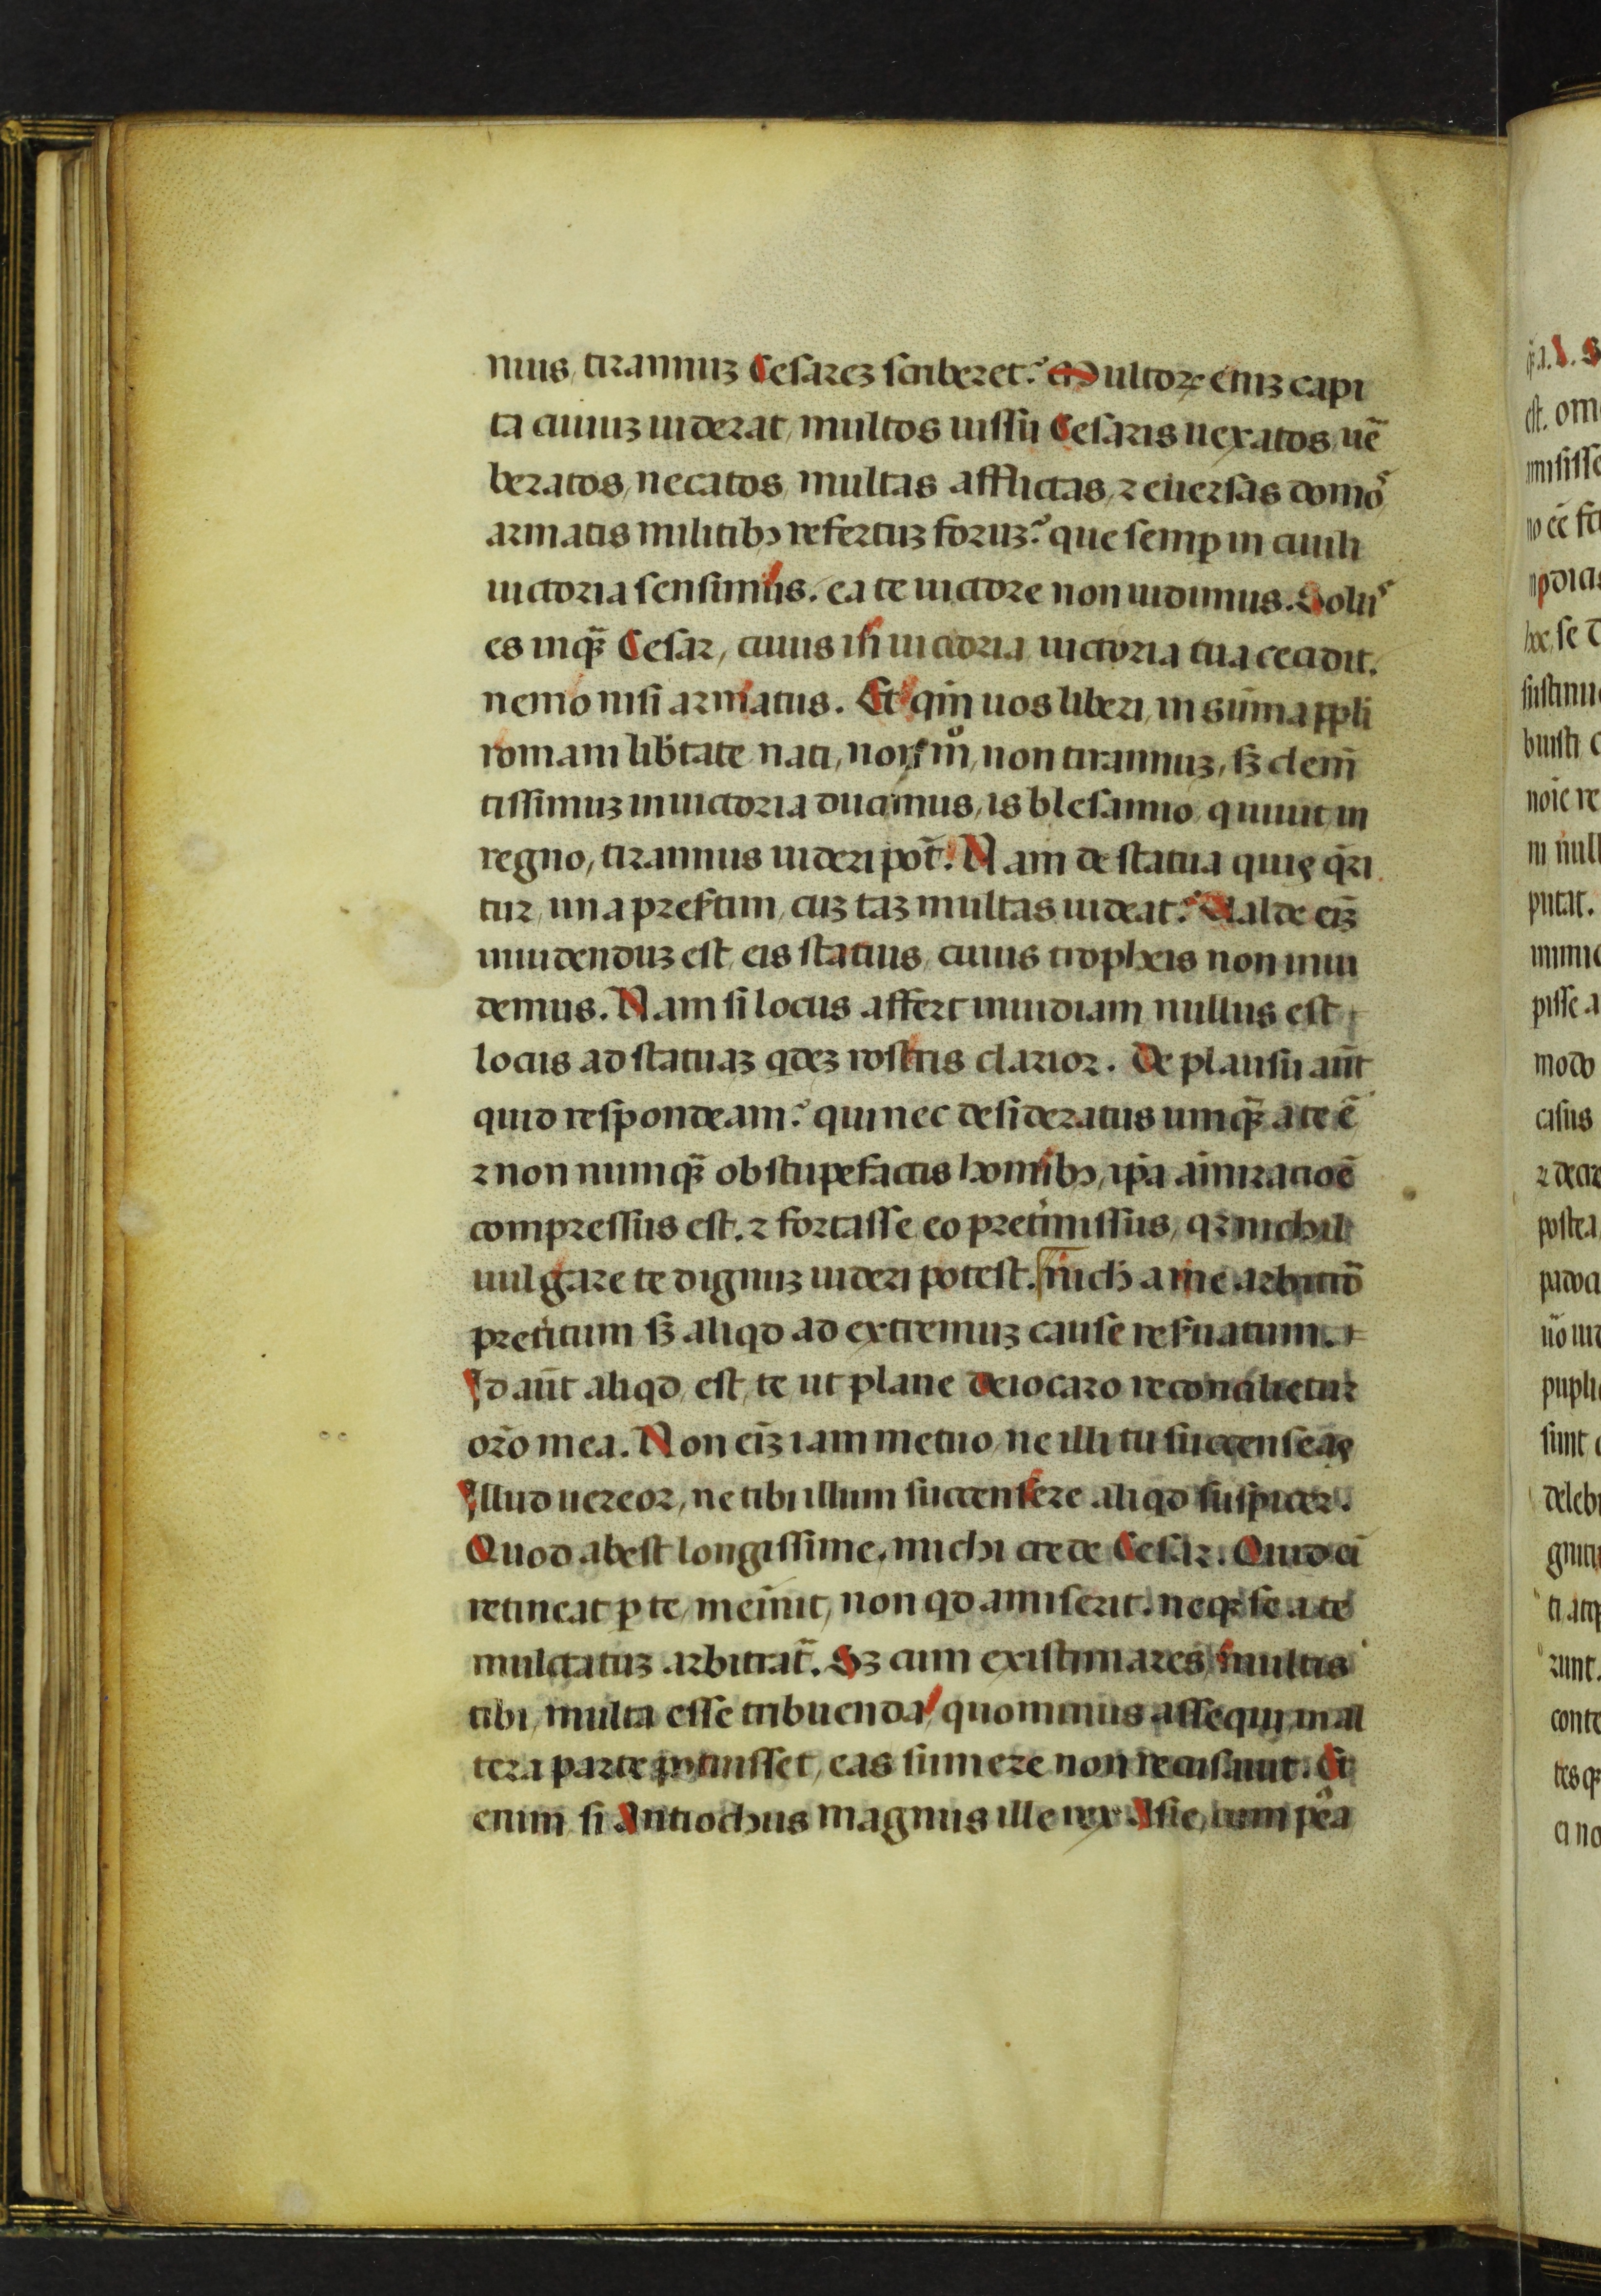 nius, tirannuꝫ Cesareꝫ scriberet? Multoꝝ eniꝫ capi
ta ciuiuꝫ uiderat, multos iussu Cesaris uexatos, uē
beratos, necatos, multas afflictas, ⁊ euersas domoˢ
armatis militibꝫ refertuꝫ foruꝫ? que semꝑ in ciuili
uictoria sensimus. ea te uictore non uidimus. Soluˢ
es inqꝫ̄ Cesar, cuius in uictoria uictoria tua cecidit.
nemo nisi armatus. Et quē nos liberi, in sūma ppli
romani libꝛtate nati, non mͦ, non tirannuꝫ, sꝫ clem̄
tissimuꝫ in uictoria ducimus, is blesamio, q uiuit in
regno, tirannus uideri pot̄? Nam de statua quis q̄ri
tur, una presertim, cuꝫ taꝫ multas uideat? Ualde eīꝫ
inuidenduꝫ est, eis statuis, cuius tropheis non inui
demus. Nam si locus affert inuidiam nullus est
locus ad statuaꝫ qdeꝫ rostris clarior. De plausu aūt
quid respondeam? qui nec desideratus umqꝫ̄ a te ē
⁊ non numqꝫ̄ obstupefactis homībꝫ, ip̄a am̄iratioē
compressus est. ⁊ fortasse eo pretm̄issus, qꝛ nichil
uulgare te dignuꝫ uideri potest. nich̄ a me arbitrō
pretitum sꝫ aliqd ad extremuꝫ cause reseruatum.
Id aūt aliqd, est, te ut plane deiotaro reconcilietur
or̄o mea. Non eīꝫ iam metuo, ne illi tu succenseas
Illud uereor, ne tibi illum succensere aliqd suspicer.
Quod abest longissime, michi crede Cesar. Quid ei
retineat ꝑ te, meīnit, non qd amiserit. neqꝫ se a te
mulctatuꝫ arbitrat̄. Sꝫ cum existimares, multis
tibi, multa esse tribuenda, quominus assequi, in al
tera parte potuisset, eas sumere non recusauit. Et
enim si Antiochus magnus ille rex Asie, cum pēa